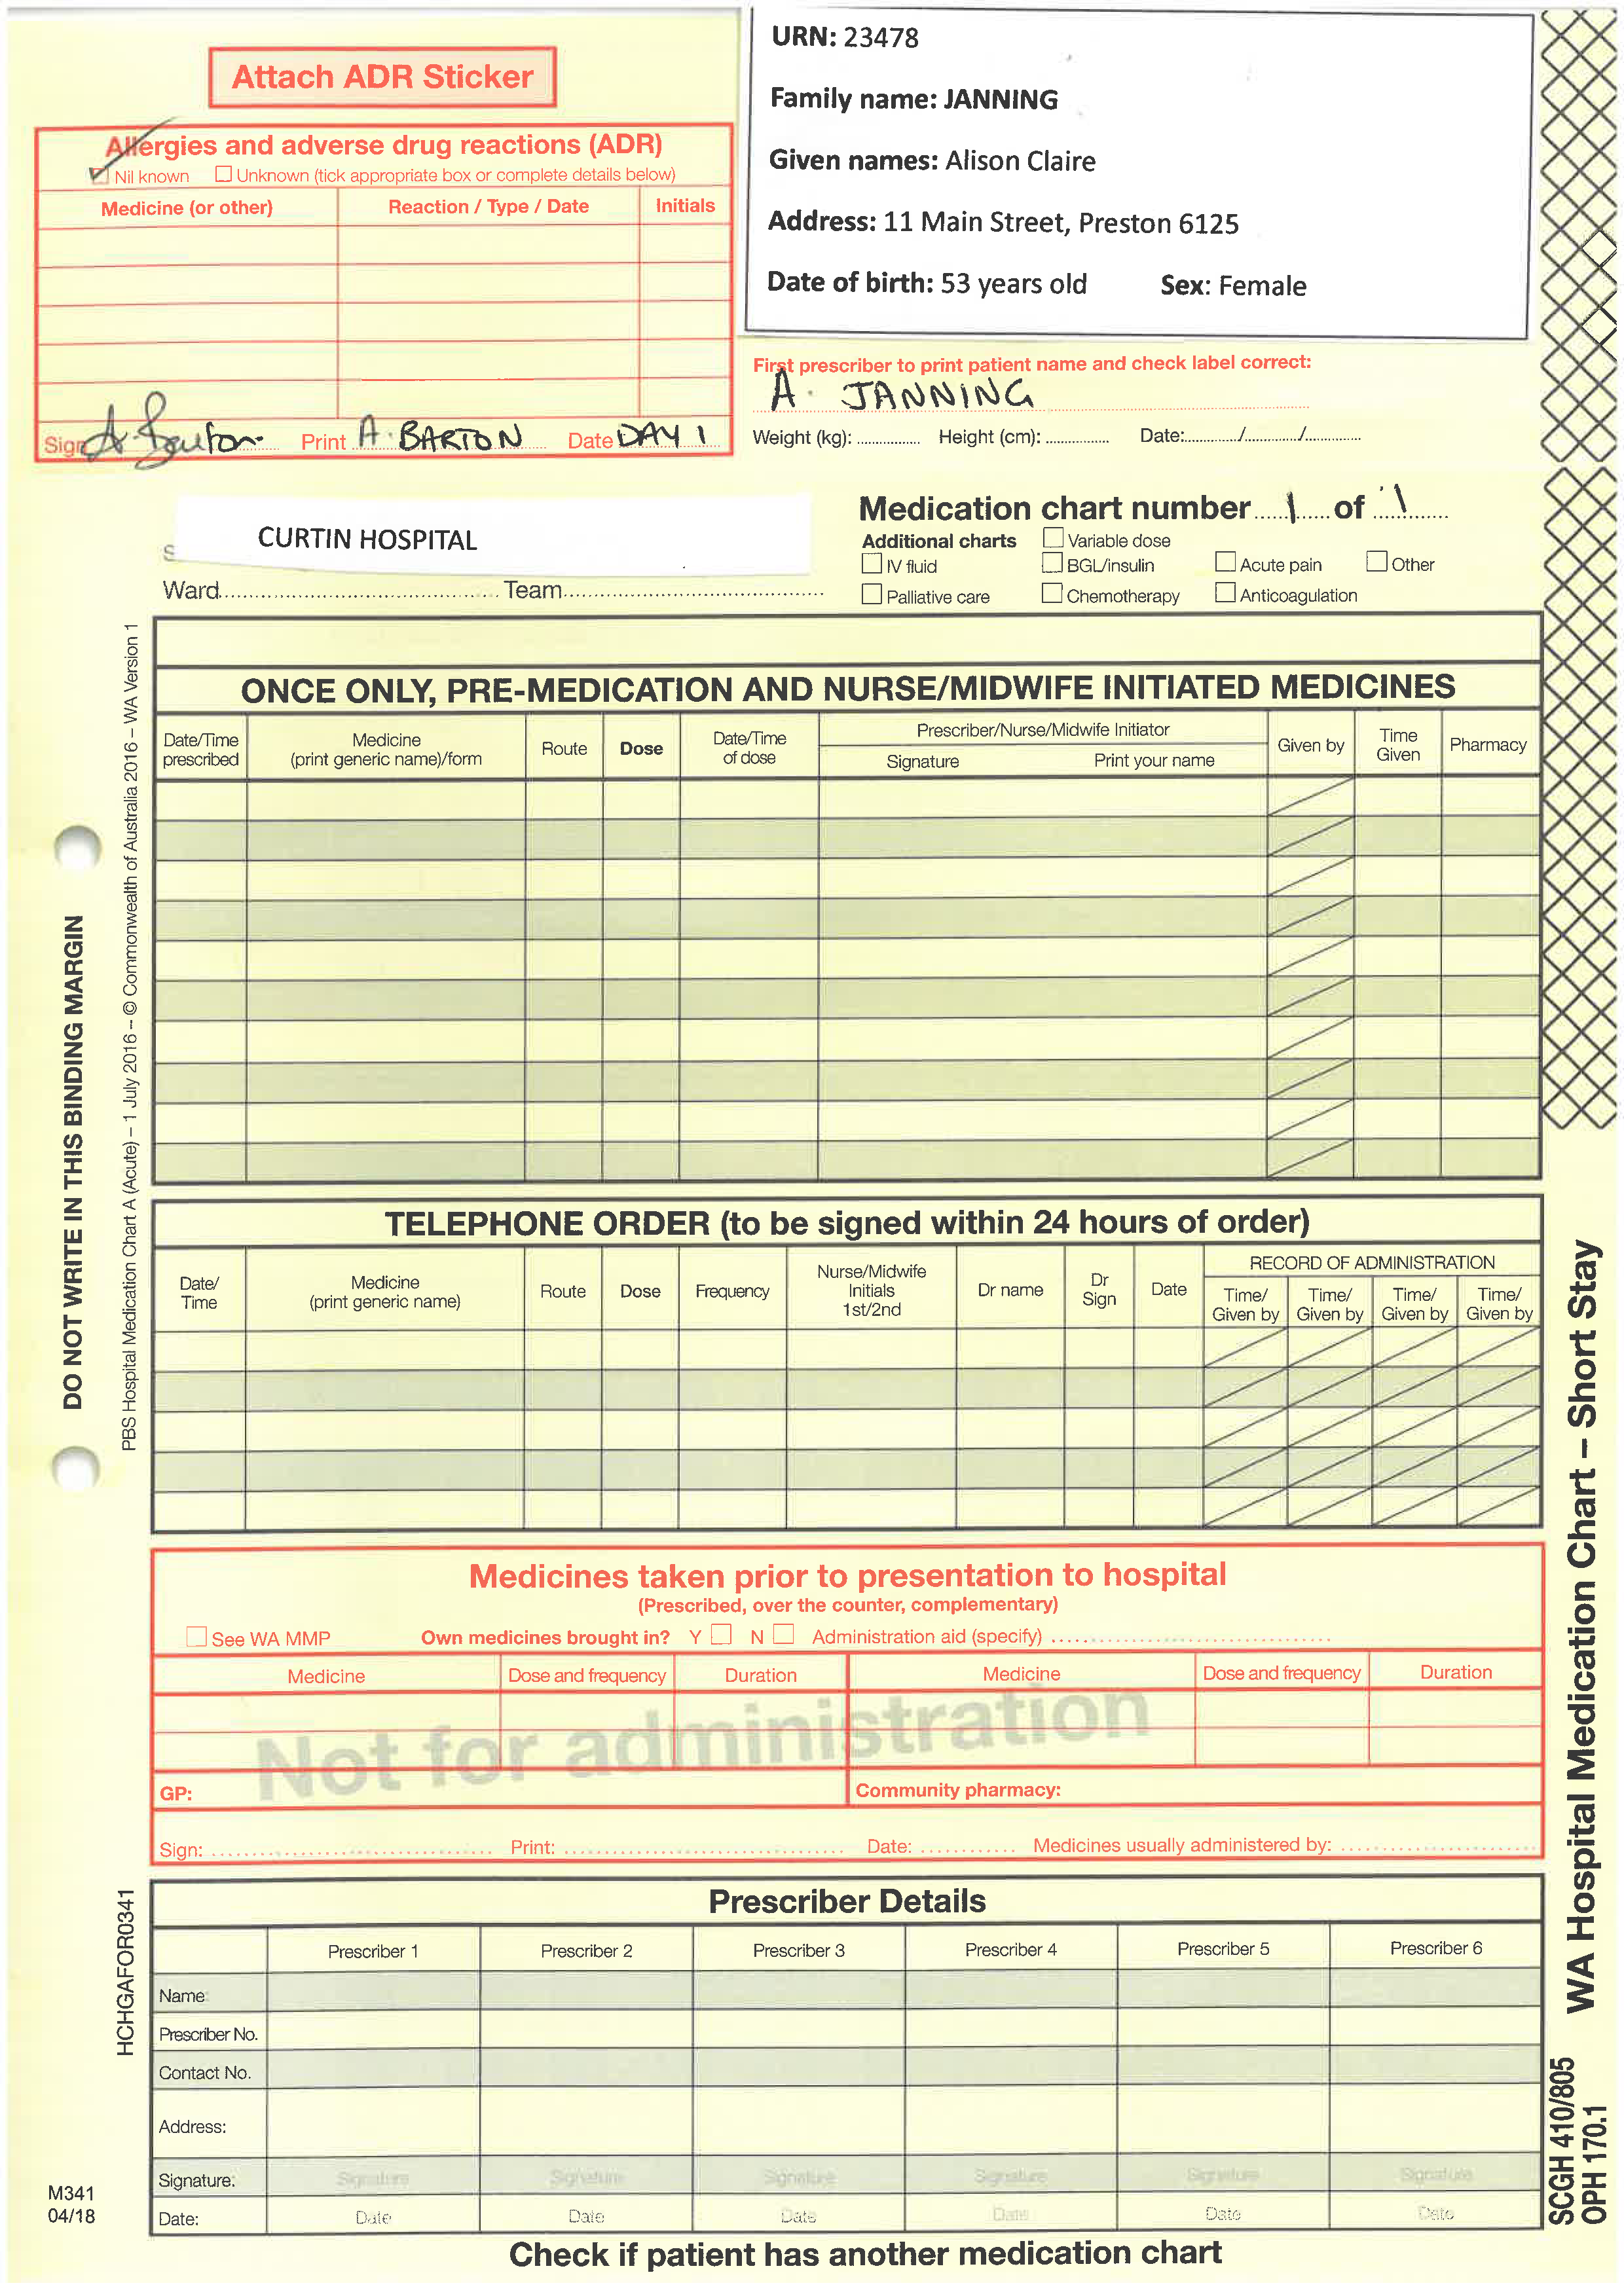 Attach ADR Sticker
Allergies and adverse drug reactions (ADR)
Nil known Unknown (tick appropriate box or complete details below)
Medicine (or other) Reaction / Type / Date Initials
Sign A. Barton Print A. BARTON Date DAY 1
URN: 23478
Family name: JANNING
Given names: Alison Claire
Address: 11 Main Street, Preston 6125
Date of birth: 53 years old Sex: Female
First prescriber to print patient name and check label correct:
A. JANNING
Weight (kg): Height (cm): Date: / /
S
CURTIN HOSPITAL
Ward Team
Medication chart number 1 of 1
Additional charts Variable dose
IV fluid BGL/insulin Acute pain Other
Palliative care Chemotherapy Anticoagulation
ONCE ONLY, PRE-MEDICATION AND NURSE/MIDWIFE INITIATED MEDICINES
Date/Time prescribed Medicine (print generic name)/form Route Dose Date/Time of dose Prescriber/Nurse/Midwife Initiator Signature Print your name Given by Time Given Pharmacy
TELEPHONE ORDER (to be signed within 24 hours of order)
Date/ Time Medicine (print generic name) Route Dose Frequency Nurse/Midwife Initials 1st/2nd Dr name Dr Sign Date RECORD OF ADMINISTRATION
Time/ Given by Time/ Given by Time/ Given by Time/ Given by
Medicines taken prior to presentation to hospital
(Prescribed, over the counter, complementary)
See WA MMP Own medicines brought in? Y N Administration aid (specify)
Medicine Dose and frequency Duration Medicine Dose and frequency Duration
Not for administration
GP: Community pharmacy:
Sign: Print: Date: Medicines usually administered by:
Prescriber Details
Prescriber 1 Prescriber 2 Prescriber 3 Prescriber 4 Prescriber 5 Prescriber 6
Name:
Prescriber No.
Contact No.
Address:
Signature: Signature Signature Signature Signature Signature Signature
Date: Date Date Date Date Date Date
Check if patient has another medication chart
DO NOT WRITE IN THIS BINDING MARGIN
PBS Hospital Medication Chart A (Acute) – 1 July 2016 – © Commonwealth of Australia 2016 – WA Version 1
HCHGAFOR0341
M341
04/18
WA Hospital Medication Chart – Short Stay
SCGH 410/805
OPH 170.1